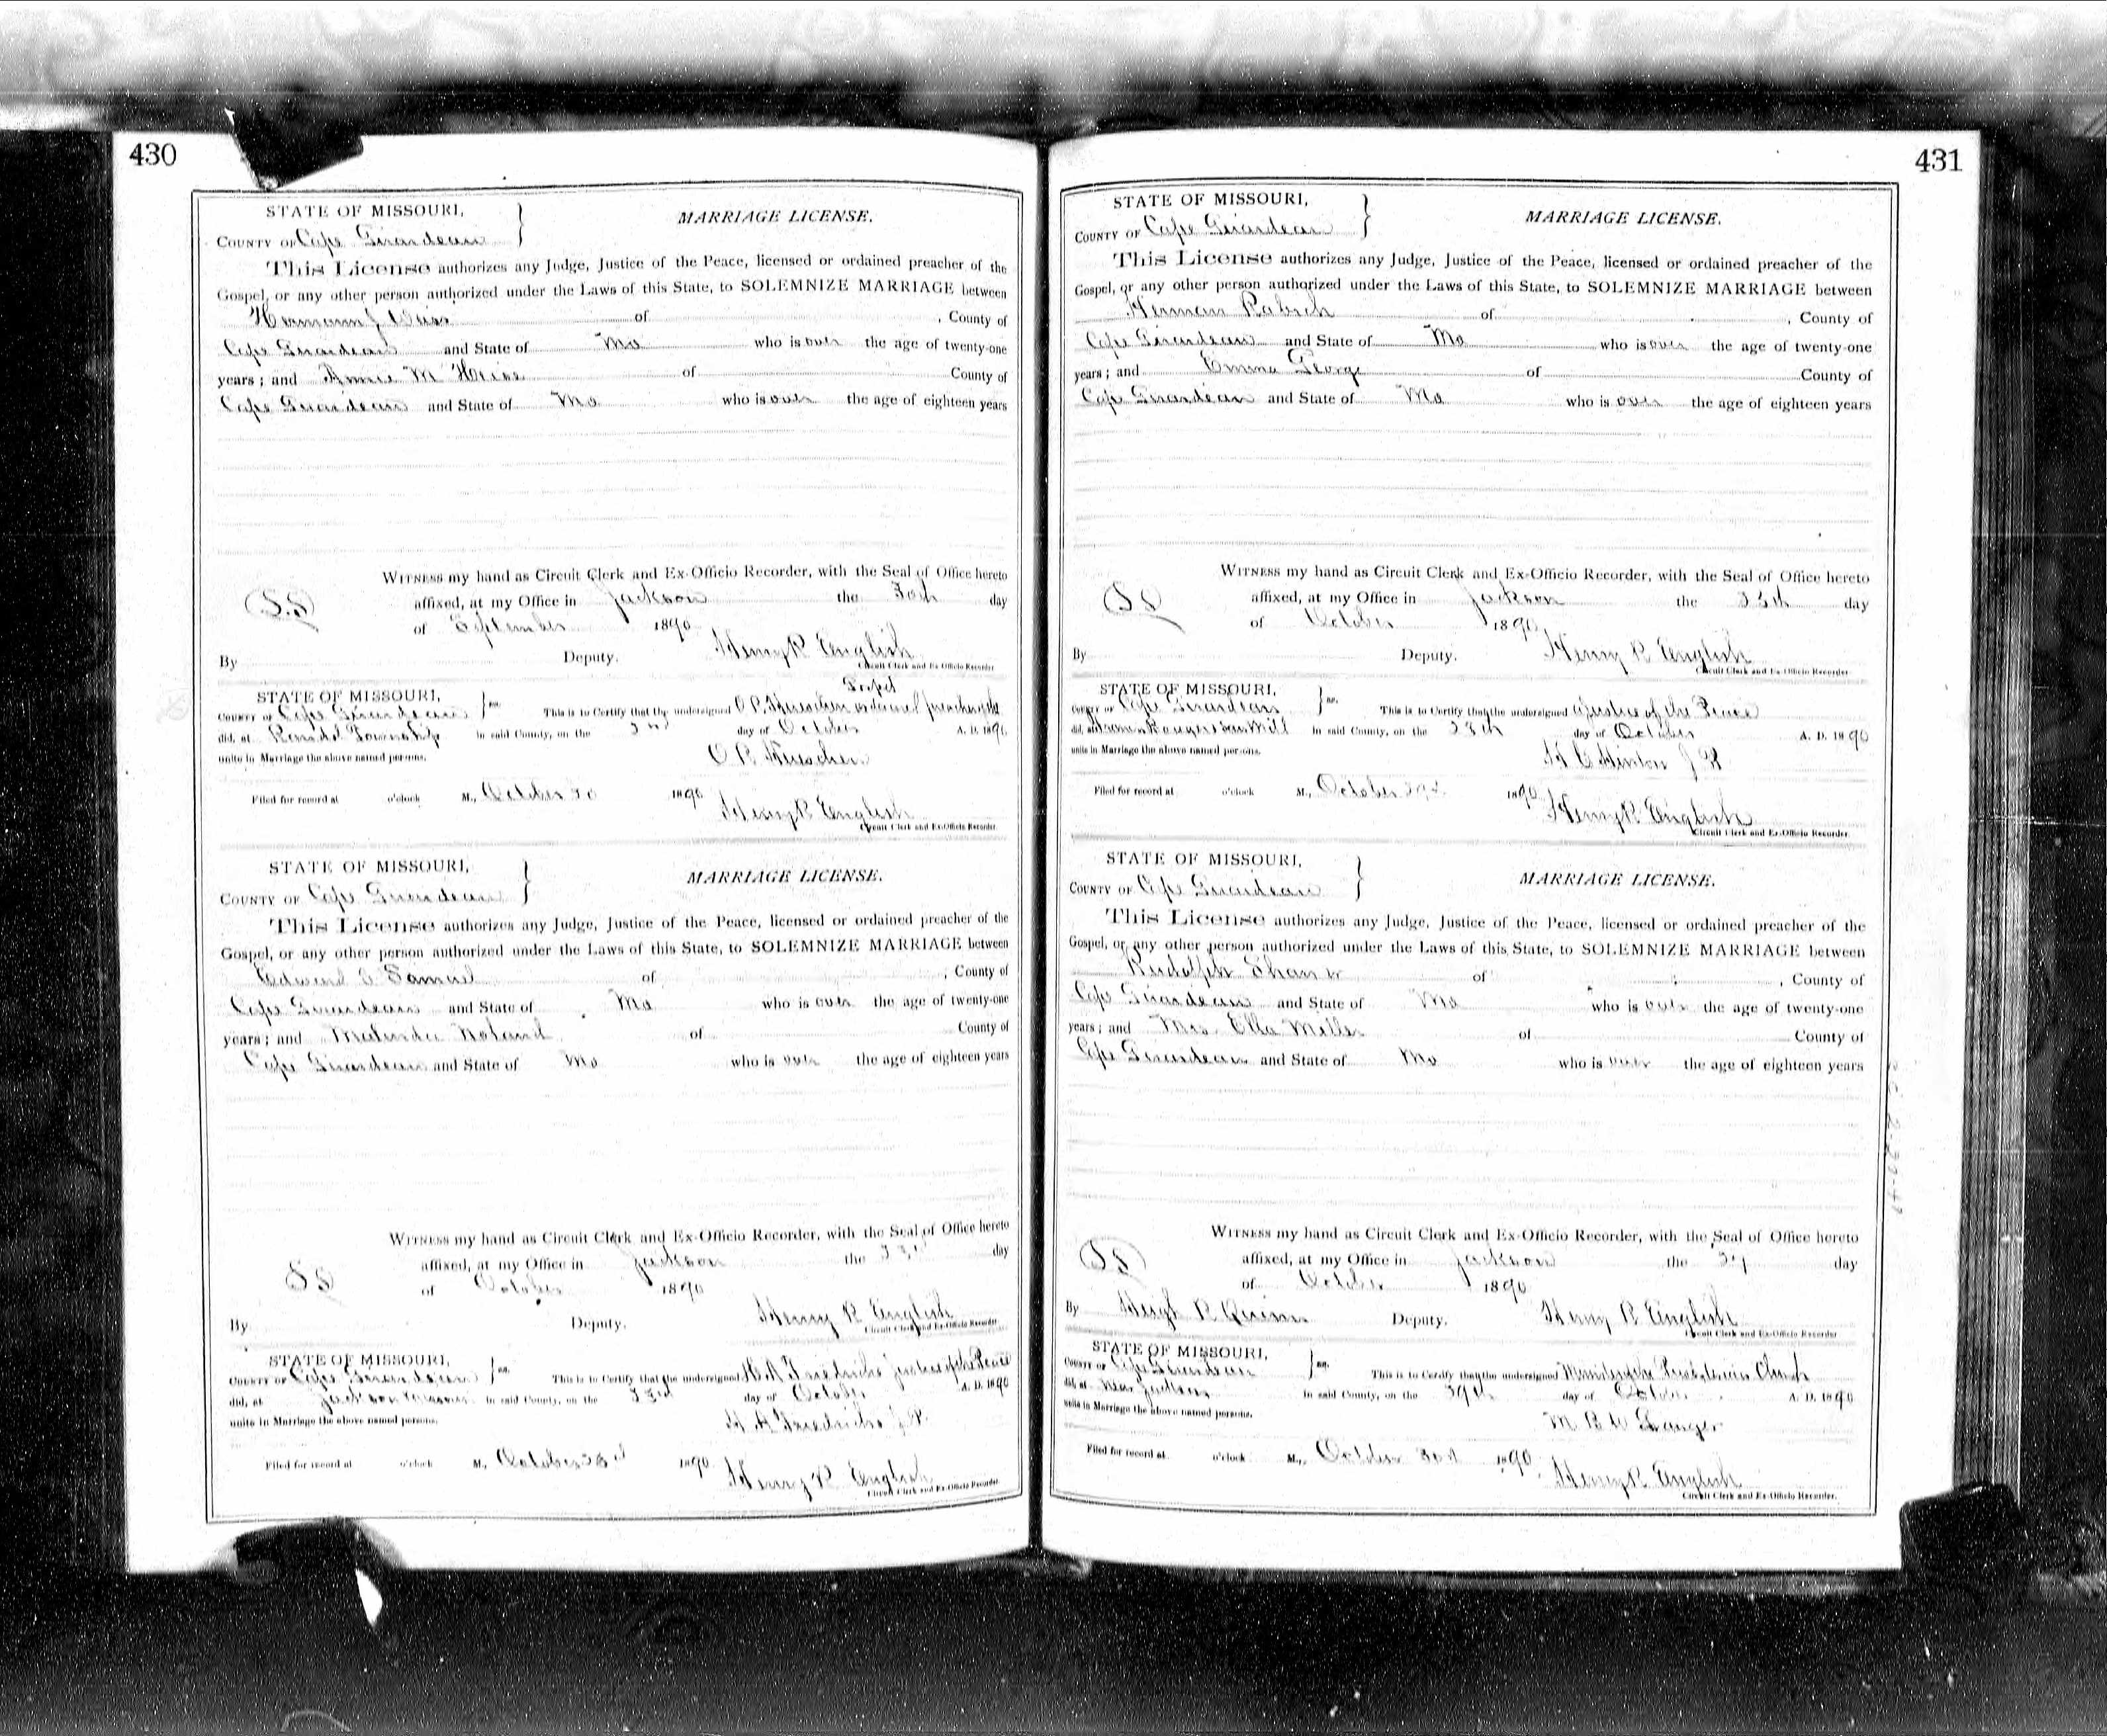 430
STATE OF MISSOURI,
MARRIAGE LICENSE.
COUNTY OF Cape Girardeau
This License authorizes any Judge, Justice of the Peace, licensed or ordained preacher of the
Gospel, or any other person authorized under the Laws of this State, to SOLEMNIZE MARRIAGE between
Hermann J of , County of
Cape Girardeau and State of Mo who is over the age of twenty-one
years; and Annie M of County of
Cape Girardeau and State of Mo who is over the age of eighteen years
WITNESS my hand as Circuit Clerk and Ex-Officio Recorder, with the Seal of Office hereto
affixed, at my Office in Jackson the 30th day
of September 1890
Henry R English
By Deputy. Circuit Clerk and Ex Officio Recorder
STATE OF MISSOURI,
COUNTY OF Cape Girardeau ss. This is to Certify that the undersigned ordained preacher of the Gospel
did, at Randol Township in said County, on the day of October A. D. 1890
unite in Marriage the above named persons.
Filed for record at o'clock M., October 1890
Henry R English
Circuit Clerk and Ex-Officio Recorder.
STATE OF MISSOURI,
MARRIAGE LICENSE.
COUNTY OF Cape Girardeau
This License authorizes any Judge, Justice of the Peace, licensed or ordained preacher of the
Gospel, or any other person authorized under the Laws of this State, to SOLEMNIZE MARRIAGE between
Edward Samuel of , County of
Cape Girardeau and State of Mo who is over the age of twenty-one
years; and Malinda Noland of County of
Cape Girardeau and State of Mo who is over the age of eighteen years
WITNESS my hand as Circuit Clerk and Ex-Officio Recorder, with the Seal of Office hereto
affixed, at my Office in Jackson the day
of October 1890
Henry R English
By Deputy. Circuit Clerk and Ex-Officio Recorder
STATE OF MISSOURI,
COUNTY OF Cape Girardeau ss. This is to Certify that the undersigned Friedricks Justice of the Peace
did, at Jackson in said County, on the day of October A. D. 1890
unite in Marriage the above named persons. Friedricks J.P.
Filed for record at o'clock M., October 1890
Henry R English
Circuit Clerk and Ex-Officio Recorder
431
STATE OF MISSOURI,
MARRIAGE LICENSE.
COUNTY OF Cape Girardeau
This License authorizes any Judge, Justice of the Peace, licensed or ordained preacher of the
Gospel, or any other person authorized under the Laws of this State, to SOLEMNIZE MARRIAGE between
Herman Rabich of , County of
Cape Girardeau and State of Mo who is over the age of twenty-one
years; and Emma George of County of
Cape Girardeau and State of Mo who is over the age of eighteen years
WITNESS my hand as Circuit Clerk and Ex-Officio Recorder, with the Seal of Office hereto
affixed, at my Office in Jackson the day
of October 1890
Henry R English
By Deputy. Circuit Clerk and Ex-Officio Recorder.
STATE OF MISSOURI,
COUNTY OF Cape Girardeau ss. This is to Certify that the undersigned Justice of the Peace
did, at Mill in said County, on the day of October A. D. 1890
unite in Marriage the above named persons. Hinton J P
Filed for record at o'clock M., October 1890
Henry R English
Circuit Clerk and Ex-Officio Recorder.
STATE OF MISSOURI,
MARRIAGE LICENSE.
COUNTY OF Cape Girardeau
This License authorizes any Judge, Justice of the Peace, licensed or ordained preacher of the
Gospel, or any other person authorized under the Laws of this State, to SOLEMNIZE MARRIAGE between
Rudolph of , County of
Cape Girardeau and State of Mo who is over the age of twenty-one
years; and Mrs Ella Miller of County of
Cape Girardeau and State of Mo who is over the age of eighteen years
WITNESS my hand as Circuit Clerk and Ex-Officio Recorder, with the Seal of Office hereto
affixed, at my Office in Jackson the day
of October 1890
By Hugh R Quinn Deputy. Henry R English
Circuit Clerk and Ex-Officio Recorder
STATE OF MISSOURI,
COUNTY OF Cape Girardeau ss. This is to Certify that the undersigned Presbyterian Church
did, at near Jackson in said County, on the 29th day of October A. D. 1890
unite in Marriage the above named persons.
Filed for record at o'clock M., October 1890
Henry R English
Circuit Clerk and Ex-Officio Recorder.